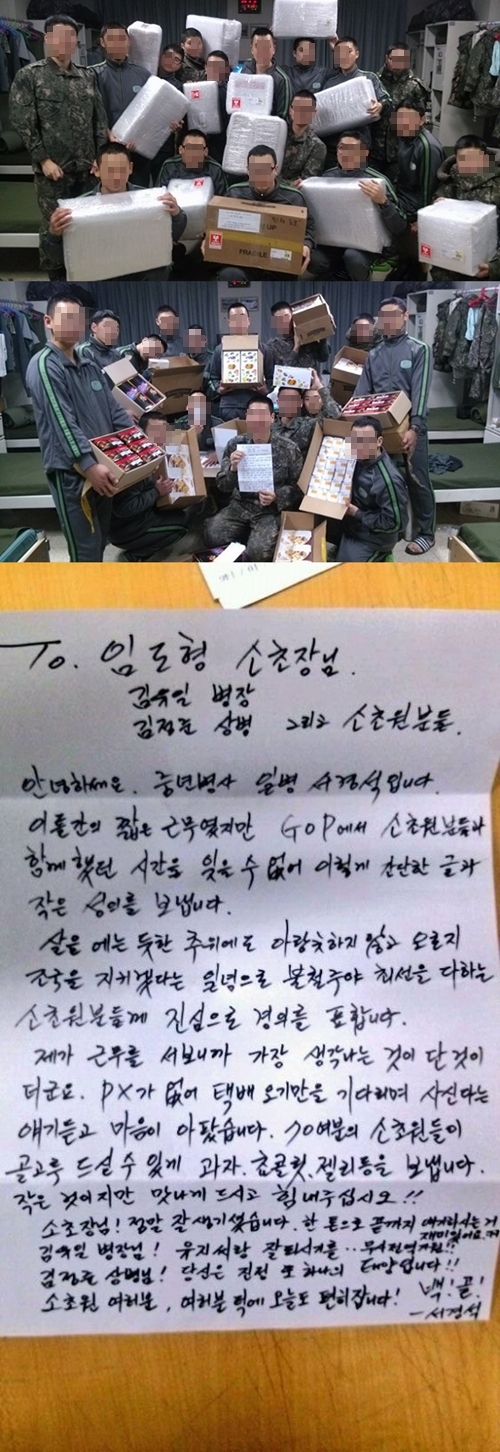 UP
FRAGILE
To. 임도형 소초장님.
김유일 병장
김정준 상병 그리고 소초원분들.
안녕하세요. 중년병사 일병 서경석입니다.
이틀간의 짧은 근무였지만 GOP에서 소초원분들과
함께 했던 시간을 잊을 수 없어 이렇게 간단한 글과
작은 성의를 보냅니다.
살을 에는 듯한 추위에도 아랑곳하지 않고 오로지
조국을 지키겠다는 일념으로 불철주야 최선을 다하는
소초원분들께 진심으로 경의를 표합니다.
제가 근무를 서보니까 가장 생각나는 것이 단것이
더군요. PX가 없어 택배 오기만을 기다리며 사신다는
얘기듣고 마음이 아팠습니다. 70여분의 소초원들이
골고루 드실 수 있게 과자. 초콜릿. 젤리등을 보냅니다.
작은 것이지만 맛나게 드시고 힘내주십시오!!
소초장님! 정말 잘생기셨습니다. 한 톤으로 끝까지 얘기하시는 거
재미있어요.
김유일 병장님! 유지씨랑 잘되시기를.. 무사전역기원!!
김정준 상병님! 당신은 진정 또 하나의 태양입니다!!
소초원 여러분, 여러분 덕에 오늘도 편히잡니다! 백!골!
-서경석